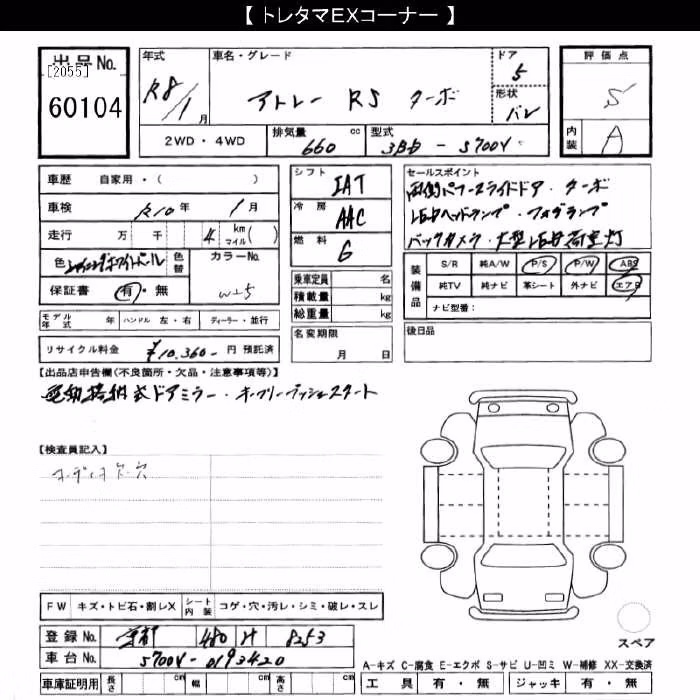 【 トレタマEXコーナー 】
出品No. [2055] 60104
年式 R8/1月
車名・グレード アトレー RS ターボ
ドア 5
形状 バン
評価点 S
内装 A
2WD・4WD 排気量 660 cc 型式 3BD-S700V
車歴 自家用・( )
車検 R10年 1月
走行 万 千 4 km マイル( )
色 シャイニングホワイトパール 色替 カラーNo. W25
保証書 有・無
シフト IAT
冷房 AAC
燃料 G
乗車定員 名
積載量 kg
総重量 kg
セールスポイント
両側パワースライドドア・ターボ
LEDヘッドランプ・フォグランプ
バックカメラ・大型LED荷室灯
装備品 S/R 純A/W P/S P/W ABS
純TV 純ナビ 革シート 外ナビ エアB
ナビ型番:
モデル年式 年 ハンドル 左・右 ディーラー・並行
名変期限 月 日
後日品
リサイクル料金 ¥10,360- 円 預託済
【出品店申告欄(不良箇所・欠品・注意事項等)】
電動格納式ドアミラー・キーフリープッシュスタート
【検査員記入】
オーディオレス 穴
FW キズ・トビ石・割レX シート内装 コゲ・穴・汚レ・シミ・破レ・スレ
登録No. 京都 480 け 8253
車台No. S700V-0193420
スペア
A-キズ C-腐食 E-エクボ S-サビ U-凹ミ W-補修 XX-交換済
車庫証明用 長さ cm 幅 cm 高さ cm
工具 有・無 ジャッキ 有・無